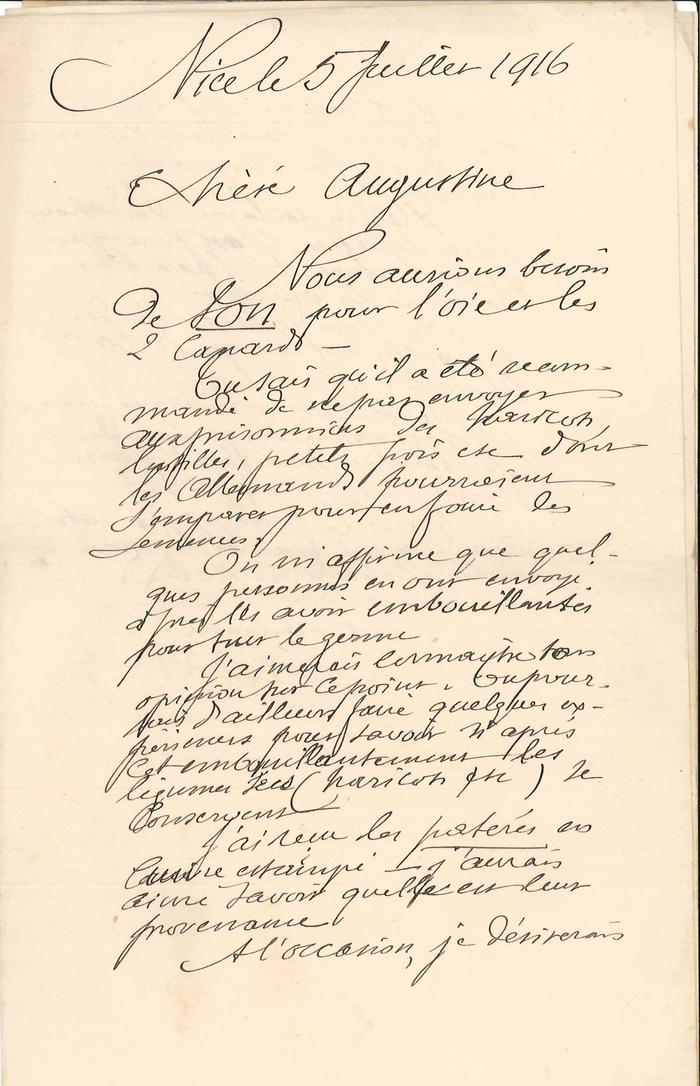 Nice le 5 Juillet 1916
Chère Augustine
Nous aurions besoin
de son pour l'oie et les
2 Canards —
Tu sais qu'il a été recom-
mandé de ne pas envoyer
aux prisonniers des haricots,
lentilles, petits pois etc dont
les Allemands pourraient
s'emparer pour en faire des
semences.
On m'affirme que quel-
ques personnes en ont envoyé
après les avoir embouillantés
pour tuer le germe
J'aimerais connaître ton
opinion sur ce point. Tu pour-
rais d'ailleurs faire quelques ex-
périences pour savoir si après
cet embouillantement les
légumes secs (haricots etc) se
conservent
J'ai reçu les patères en
cuivre estampé — j'aurais
aimé savoir quelle est leur
provenance
A l'occasion, je désirerais